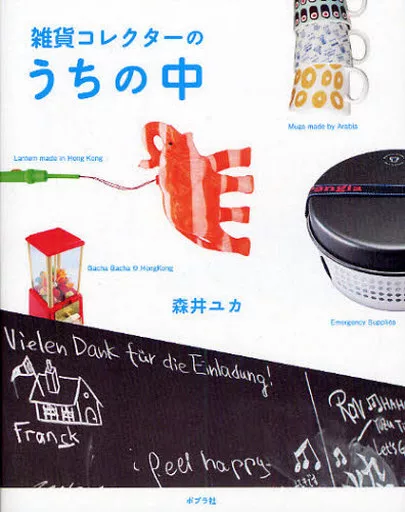 雑貨コレクターの
うちの中
Mugs made by Arabia
Lantern made in Hong Kong
angia
Gacha Gacha @ HongKong
森井ユカ
Emergency Supplies
Vielen Dank für die Einladung!
Franck
i feel happy
ポプラ社